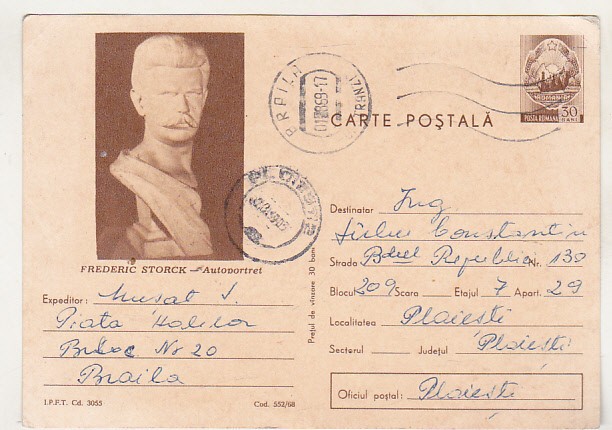 FREDERIC STORCK — Autoportret
Expeditor: Musat I.
Piata Halelor
Bloc Nr 20
Braila
I.P.F.T. Cd. 3055
Cod. 552/68
Prețul de vînzare 30 bani
BRAILA
CARTE POȘTALĂ
POSTA ROMANA 30 BANI
Destinatar Ing
Constantin
Strada Bdul Republicii Nr. 130
Blocul 209 Scara Etajul 7 Apart. 29
Localitatea Ploiesti
Sectorul Județul Ploiesti
Oficiul poștal: Ploiesti